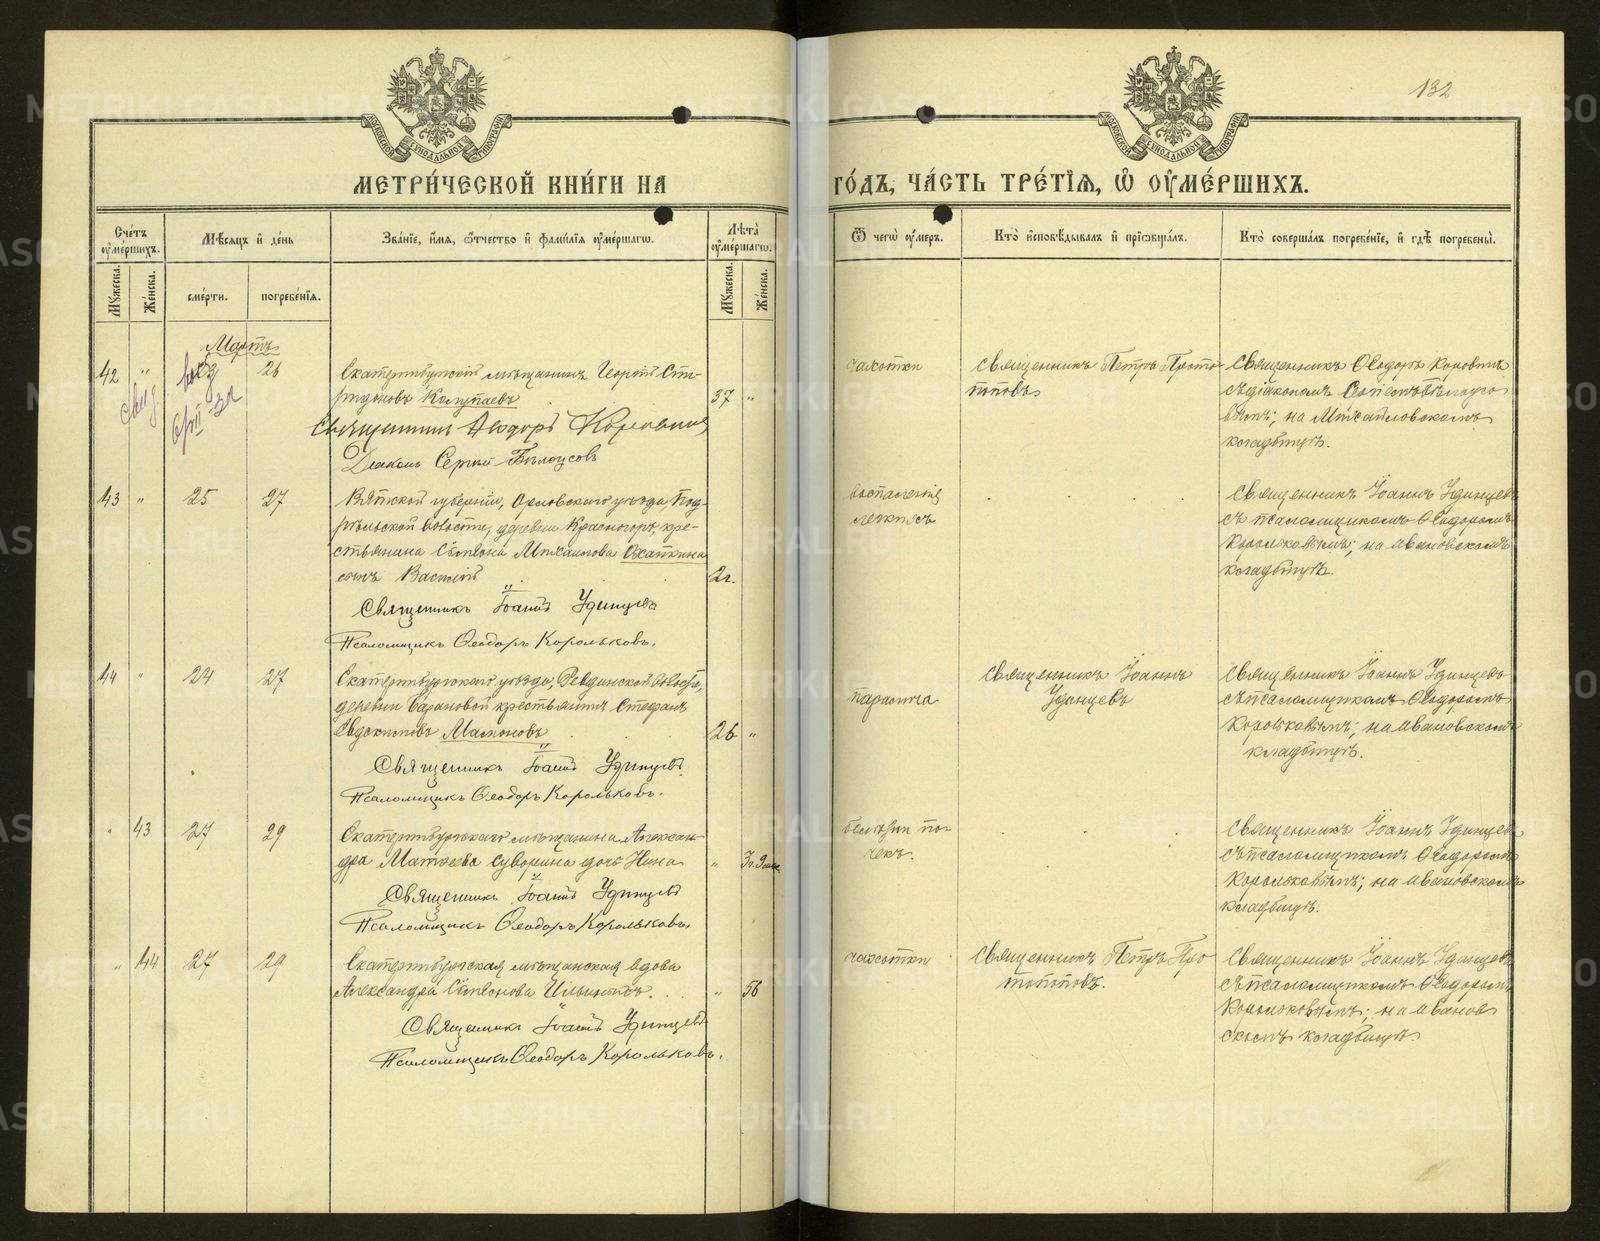 132
МЕТРИ́ЧЕСКОЙ КНИ́ГИ НА
ГО́ДЪ, ЧА́СТЬ ТРЕ́ТІЯ, Ѿ ОУМЕ́РШИХЪ.
Сче́тъ оумершихъ.
Мѣсяцъ и де́нь
Зва́ніе, и́мя, ѻтчество и фами́лія оуме́ршагѡ.
Лѣта̀ оуме́ршагѡ.
Ѿ чегѡ̀ оу́меръ.
Кто̀ исповѣ́дывалъ и прїѡбща́лъ.
Кто̀ соверша́лъ погребе́ніе, и гдѣ̀ погребены̀.
Мужеска.
Же́нска.
сме́рти.
погребе́нія.
Мужеска.
Же́нска.
Мартъ
42 " 26
Екатеринбургскій мѣщанинъ Георгій Спи-
ридоновъ Колупаевъ 37 "
Священникъ Ѳеодоръ Коровинъ
Діаконъ Сергій Бѣлоусовъ
чахотки
Священникъ Петръ Прото
поповъ
Священникъ Ѳеодоръ Коровинъ
съ діакономъ Сергіемъ Бѣлоусо
вымъ; на Михайловскомъ
кладбищѣ.
43 " 25 27
Вятской губерніи, Орловскаго уѣзда, Под-
рѣльской волости, деревни Красногоръ, кре-
стьянина Симеона Михайлова Охапкина
сынъ Василій 2 г.
Священникъ Іоаннъ Удинцевъ
Псаломщикъ Ѳеодоръ Корольковъ.
воспаленія
легкихъ
Священникъ Іоаннъ Удинцевъ
съ псаломщикомъ Ѳеодоромъ
Корольковымъ; на Ивановскомъ
кладбищѣ.
44 " 24 27
Екатеринбургскаго уѣзда, Ревдинской волости,
деревни Барановой крестьянинъ Стефанъ
Евдокимовъ Мамоновъ 26 "
Священникъ Іоаннъ Удинцевъ.
Псаломщикъ Ѳеодоръ Корольковъ.
паралича
Священникъ Іоаннъ
Удинцевъ
Священникъ Іоаннъ Удинцевъ
съ псаломщикомъ Ѳеодоромъ
Корольковымъ; на Ивановскомъ
кладбищѣ.
" 43 27 29
Екатеринбургскаго мѣщанина Алексан-
дра Матѳеева Суворина дочь Нина " 3 г. 9 мѣс.
Священникъ Іоаннъ Удинцевъ
Псаломщикъ Ѳеодоръ Корольковъ.
болѣзни по-
чекъ.
Священникъ Іоаннъ Удинцевъ
съ псаломщикомъ Ѳеодоромъ
Корольковымъ; на Ивановскомъ
кладбищѣ.
" 44 27 29
Екатеринбургская мѣщанская вдова
Александра Симеонова Ильиныхъ. " 56
Священникъ Іоаннъ Удинцевъ
Псаломщикъ Ѳеодоръ Корольковъ.
чахотки
Священникъ Петръ Про
топоповъ.
Священникъ Іоаннъ Удинцевъ
съ псаломщикомъ Ѳеодоромъ
Корольковымъ; на Иванов
скомъ кладбищѣ.
METRIKI.GASO-URAL.RU